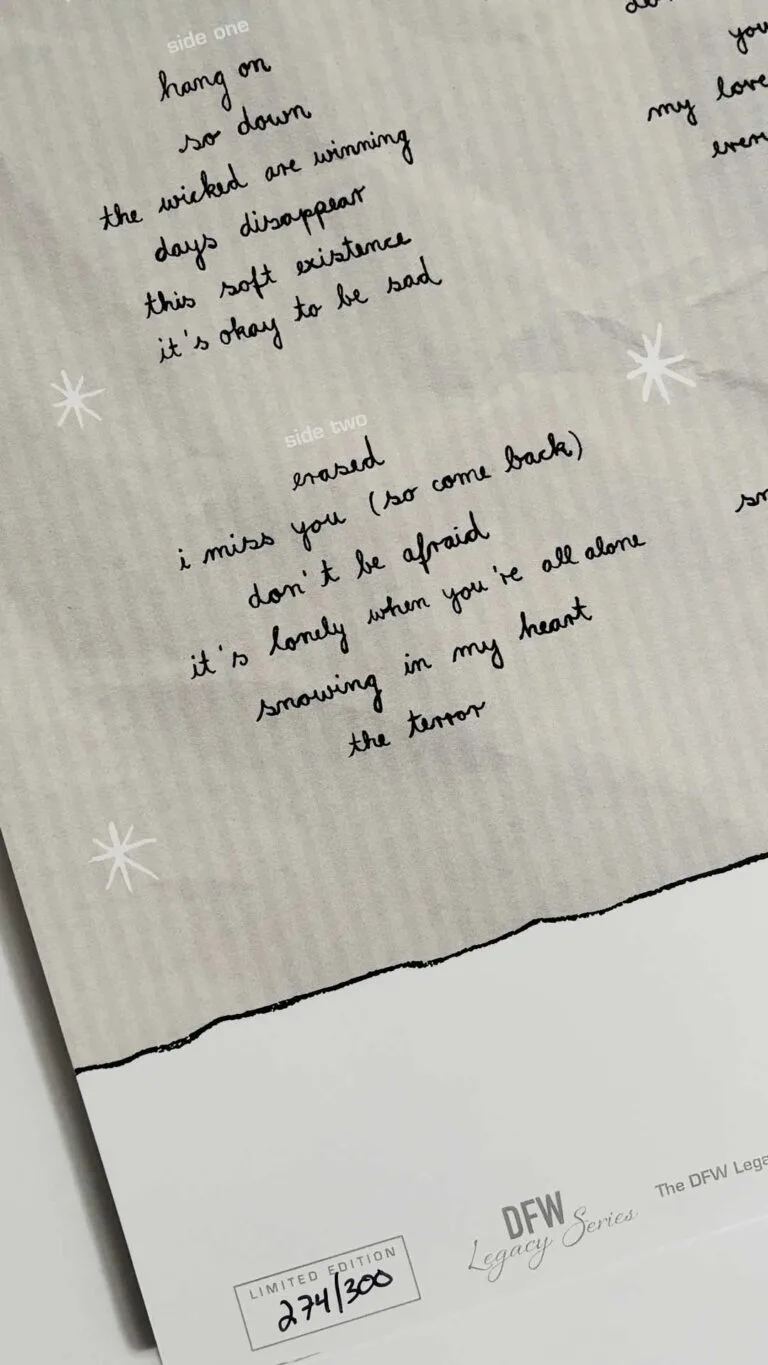 side one
hang on
so down
the wicked are winning
days disappear
this soft existence
it's okay to be sad
you
my love
side two
erased
i miss you (so come back)
don't be afraid
it's lonely when you're all alone
snowing in my heart
the terror
LIMITED EDITION
274/300
DFW
Legacy Series
The DFW Lega